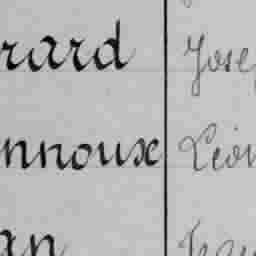 rard Jose
nnoux Léon
an